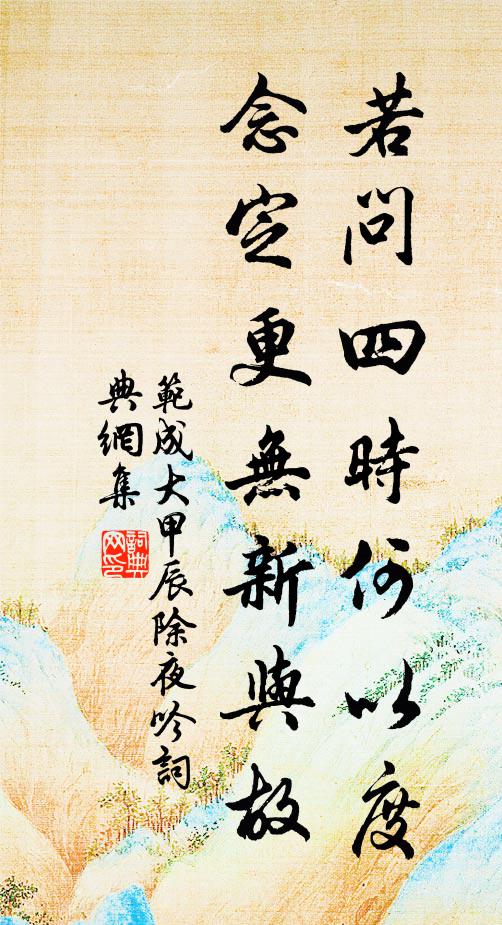 若問四時何以度
念定更無新與故
範成大甲辰除夜吟詞
典網集
詞典
网印